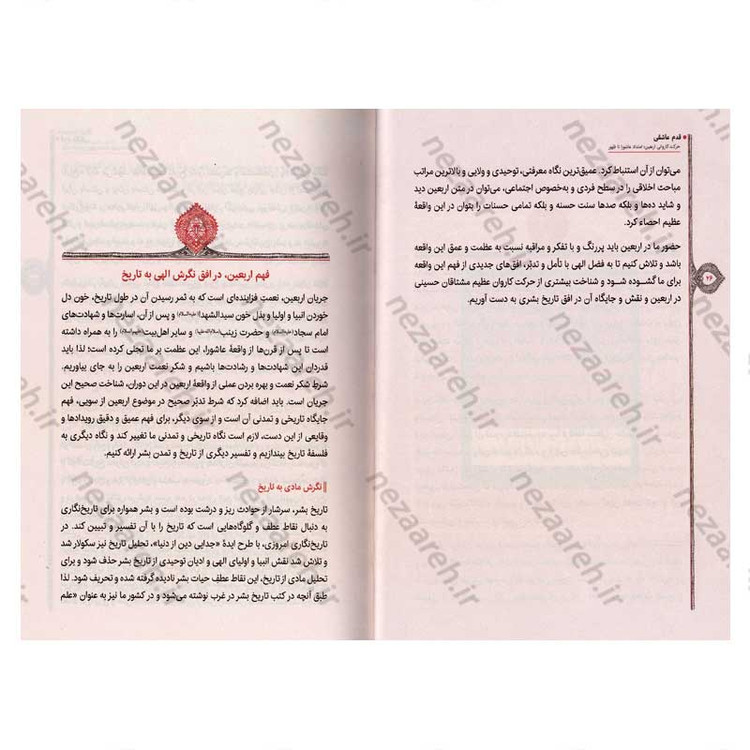 قدم عاشقی
حرکت کاروانی اربعین؛ امتداد عاشورا تا ظهور
می‌توان از آن استنباط کرد. عمیق‌ترین نگاه معرفتی، توحیدی و ولایی و بالاترین مراتب
مباحث اخلاقی را در سطح فردی و به‌خصوص اجتماعی، می‌توان در متن اربعین دید
و شاید ده‌ها و بلکه صدها سنت حسنه و بلکه تمامی حسنات را بتوان در این واقعهٔ
عظیم احصاء کرد.
حضور ما در اربعین باید پررنگ و با تفکر و مراقبه نسبت به عظمت و عمق این واقعه
باشد و تلاش کنیم تا به فضل الهی با تأمل و تدبّر، افق‌های جدیدی از فهم این واقعه
برای ما گشوده شود و شناخت بیشتری از حرکت کاروان عظیم مشتاقان حسینی
در اربعین و نقش و جایگاه آن در افق تاریخ بشری به دست آوریم.
۲۶
فهم اربعین، در افق نگرش الهی به تاریخ
جریان اربعین، نعمتِ فزاینده‌ای است که به ثمر رسیدن آن در طول تاریخ، خون دل
خوردن انبیا و اولیا و بذل خون سیدالشهدا(علیه‌السلام) و پس از آن، اسارت‌ها و شهادت‌های
امام سجاد(علیه‌السلام) و حضرت زینب و سایر اهل‌بیت را به همراه داشته
است تا پس از قرن‌ها از واقعهٔ عاشورا، این عظمت بر ما تجلی کرده است؛ لذا باید
قدردان این شهادت‌ها و رشادت‌ها باشیم و شکر نعمت اربعین را به جای بیاوریم.
شرط شکر نعمت و بهره بردن عملی از واقعهٔ اربعین در این دوران، شناخت صحیح این
جریان است. باید اضافه کرد که شرط تدبّر صحیح در موضوع اربعین از سویی، فهم
جایگاه تاریخی و تمدنی آن است و از سوی دیگر، برای فهم عمیق و دقیق رویدادها و
وقایعی از این دست، لازم است نگاه تاریخی و تمدنی ما تغییر کند و نگاه دیگری به
فلسفهٔ تاریخ بیندازیم و تفسیر دیگری از تاریخ و تمدن بشر ارائه کنیم.
نگرش مادی به تاریخ
تاریخ بشر، سرشار از حوادث ریز و درشت بوده است و بشر همواره برای تاریخ‌نگاری
به دنبال نقاط عطف و گلوگاه‌هایی است که تاریخ را با آن تفسیر و تبیین کند. در
تاریخ‌نگاری امروزی، با طرح ایدهٔ «جدایی دین از دنیا»، تحلیل تاریخ نیز سکولار شد
و تلاش شد نقش انبیا و اولیای الهی و ادیان توحیدی از تاریخ بشر حذف شود و برای
تحلیل مادی از تاریخ، این نقاط عطفِ حیات بشر نادیده گرفته شده و تحریف شود. لذا
طبق آنچه در کتب تاریخ بشر در غرب نوشته می‌شود و در کشور ما نیز به عنوان «علم
nezaareh.ir
nezaareh.ir
nezaareh.ir
nezaareh.ir
nezaareh.ir
nezaareh.ir
nezaareh.ir